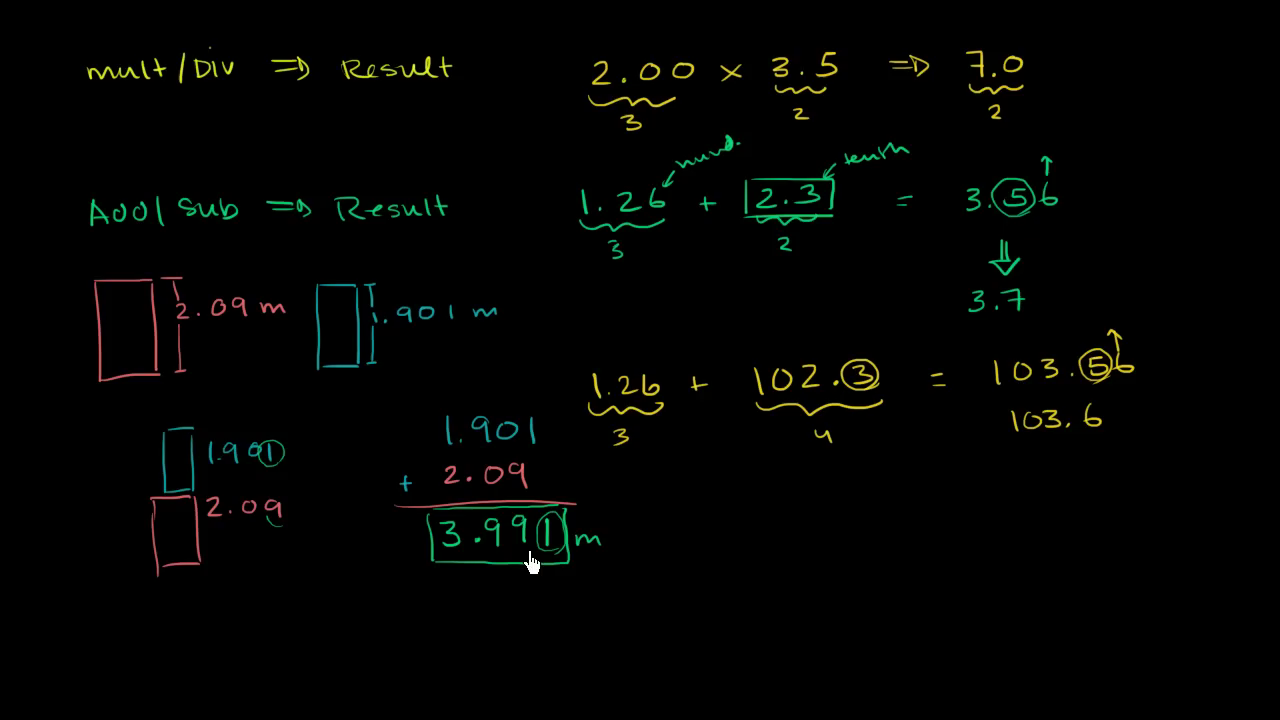 mult/Div ⇒ Result
2.00 × 3.5 ⇒ 7.0
3 2 2
hund. tenth
Add/Sub ⇒ Result
1.26 + 2.3 = 3.56
3 2
3.7
2.09 m
1.901 m
1.26 + 102.3 = 103.56
3 4
103.6
1.901
2.09
1.901
+ 2.09
3.991 m